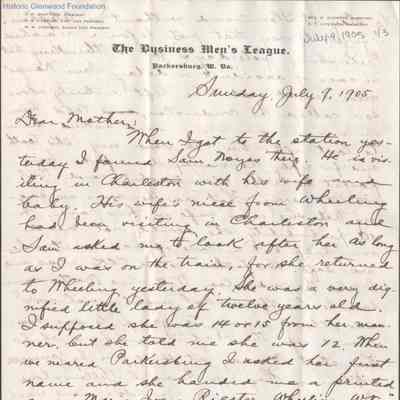 Historic Glenwood Foundation
July 9, 1905 1/3
The Business Men's League.
Parkersburg, W. Va.
Sunday, July 9, 1905
Dear Mother:
When I got to the station yes-
terday I found Sam Noyes there. He is vis-
iting in Charleston with his wife and
baby. His wife's niece from Wheeling
had been visiting in Charleston and
Sam asked me to look after her as long
as I was on the train, for she returned
to Wheeling yesterday. She was a very dig-
nified little lady of twelve years old.
I supposed she was 14 or 15 from her man-
ner, but she told me she was 12. When
we neared Parkersburg I asked her first
name and she handed me a printed